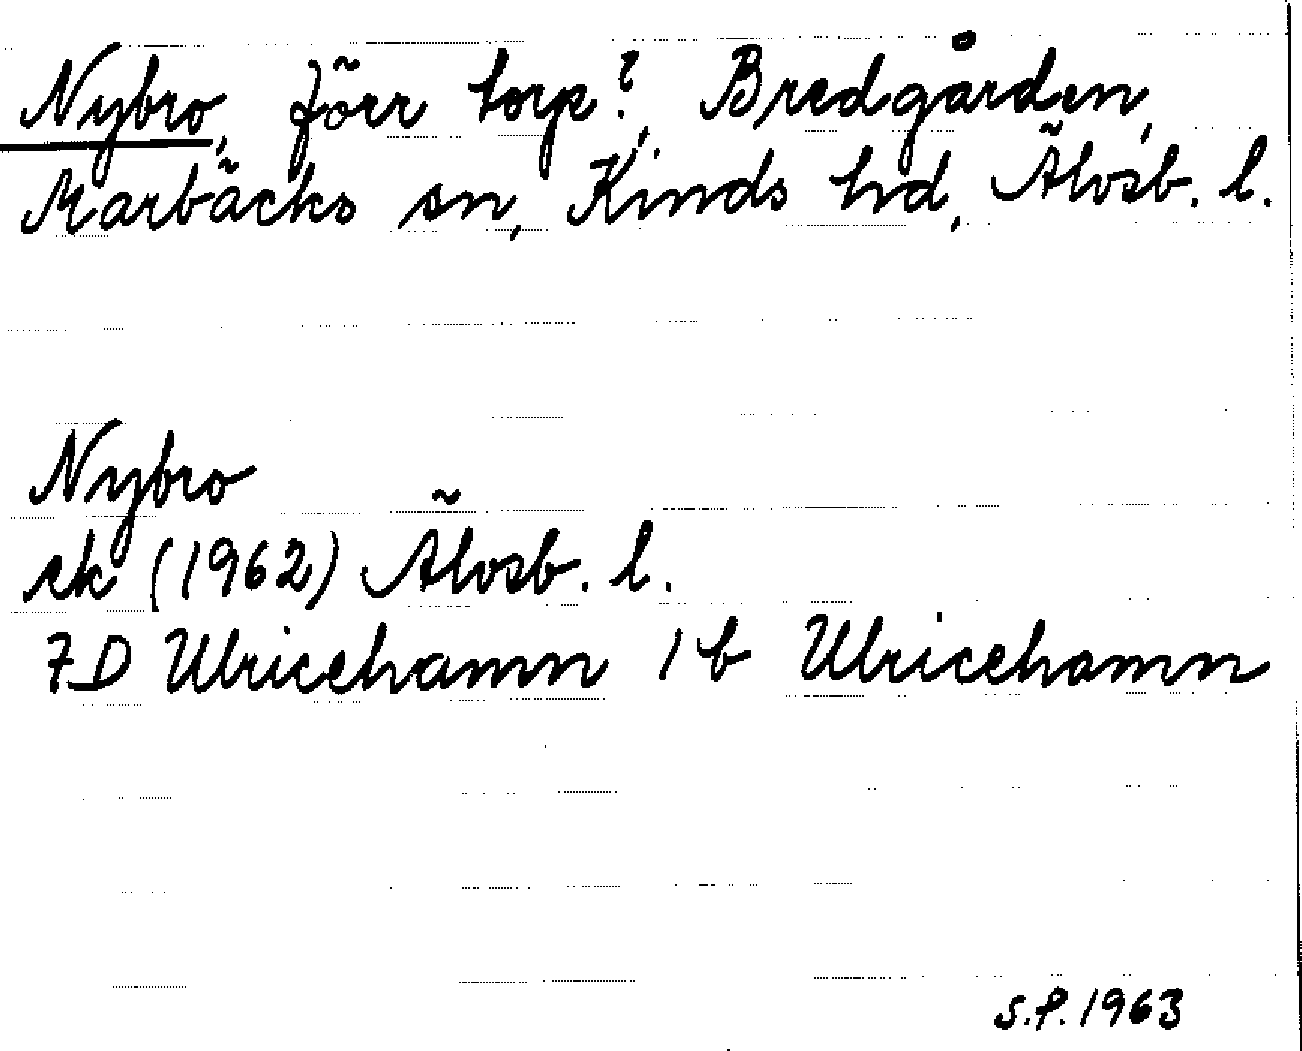 Nybro, förr torp?, Bredgården,
Marbäcks sn, Kinds hd, Älvsb. l.
Nybro
ek (1962) Älvsb. l.
7D Ulricehamn 1 b Ulricehamn
S.P. 1963